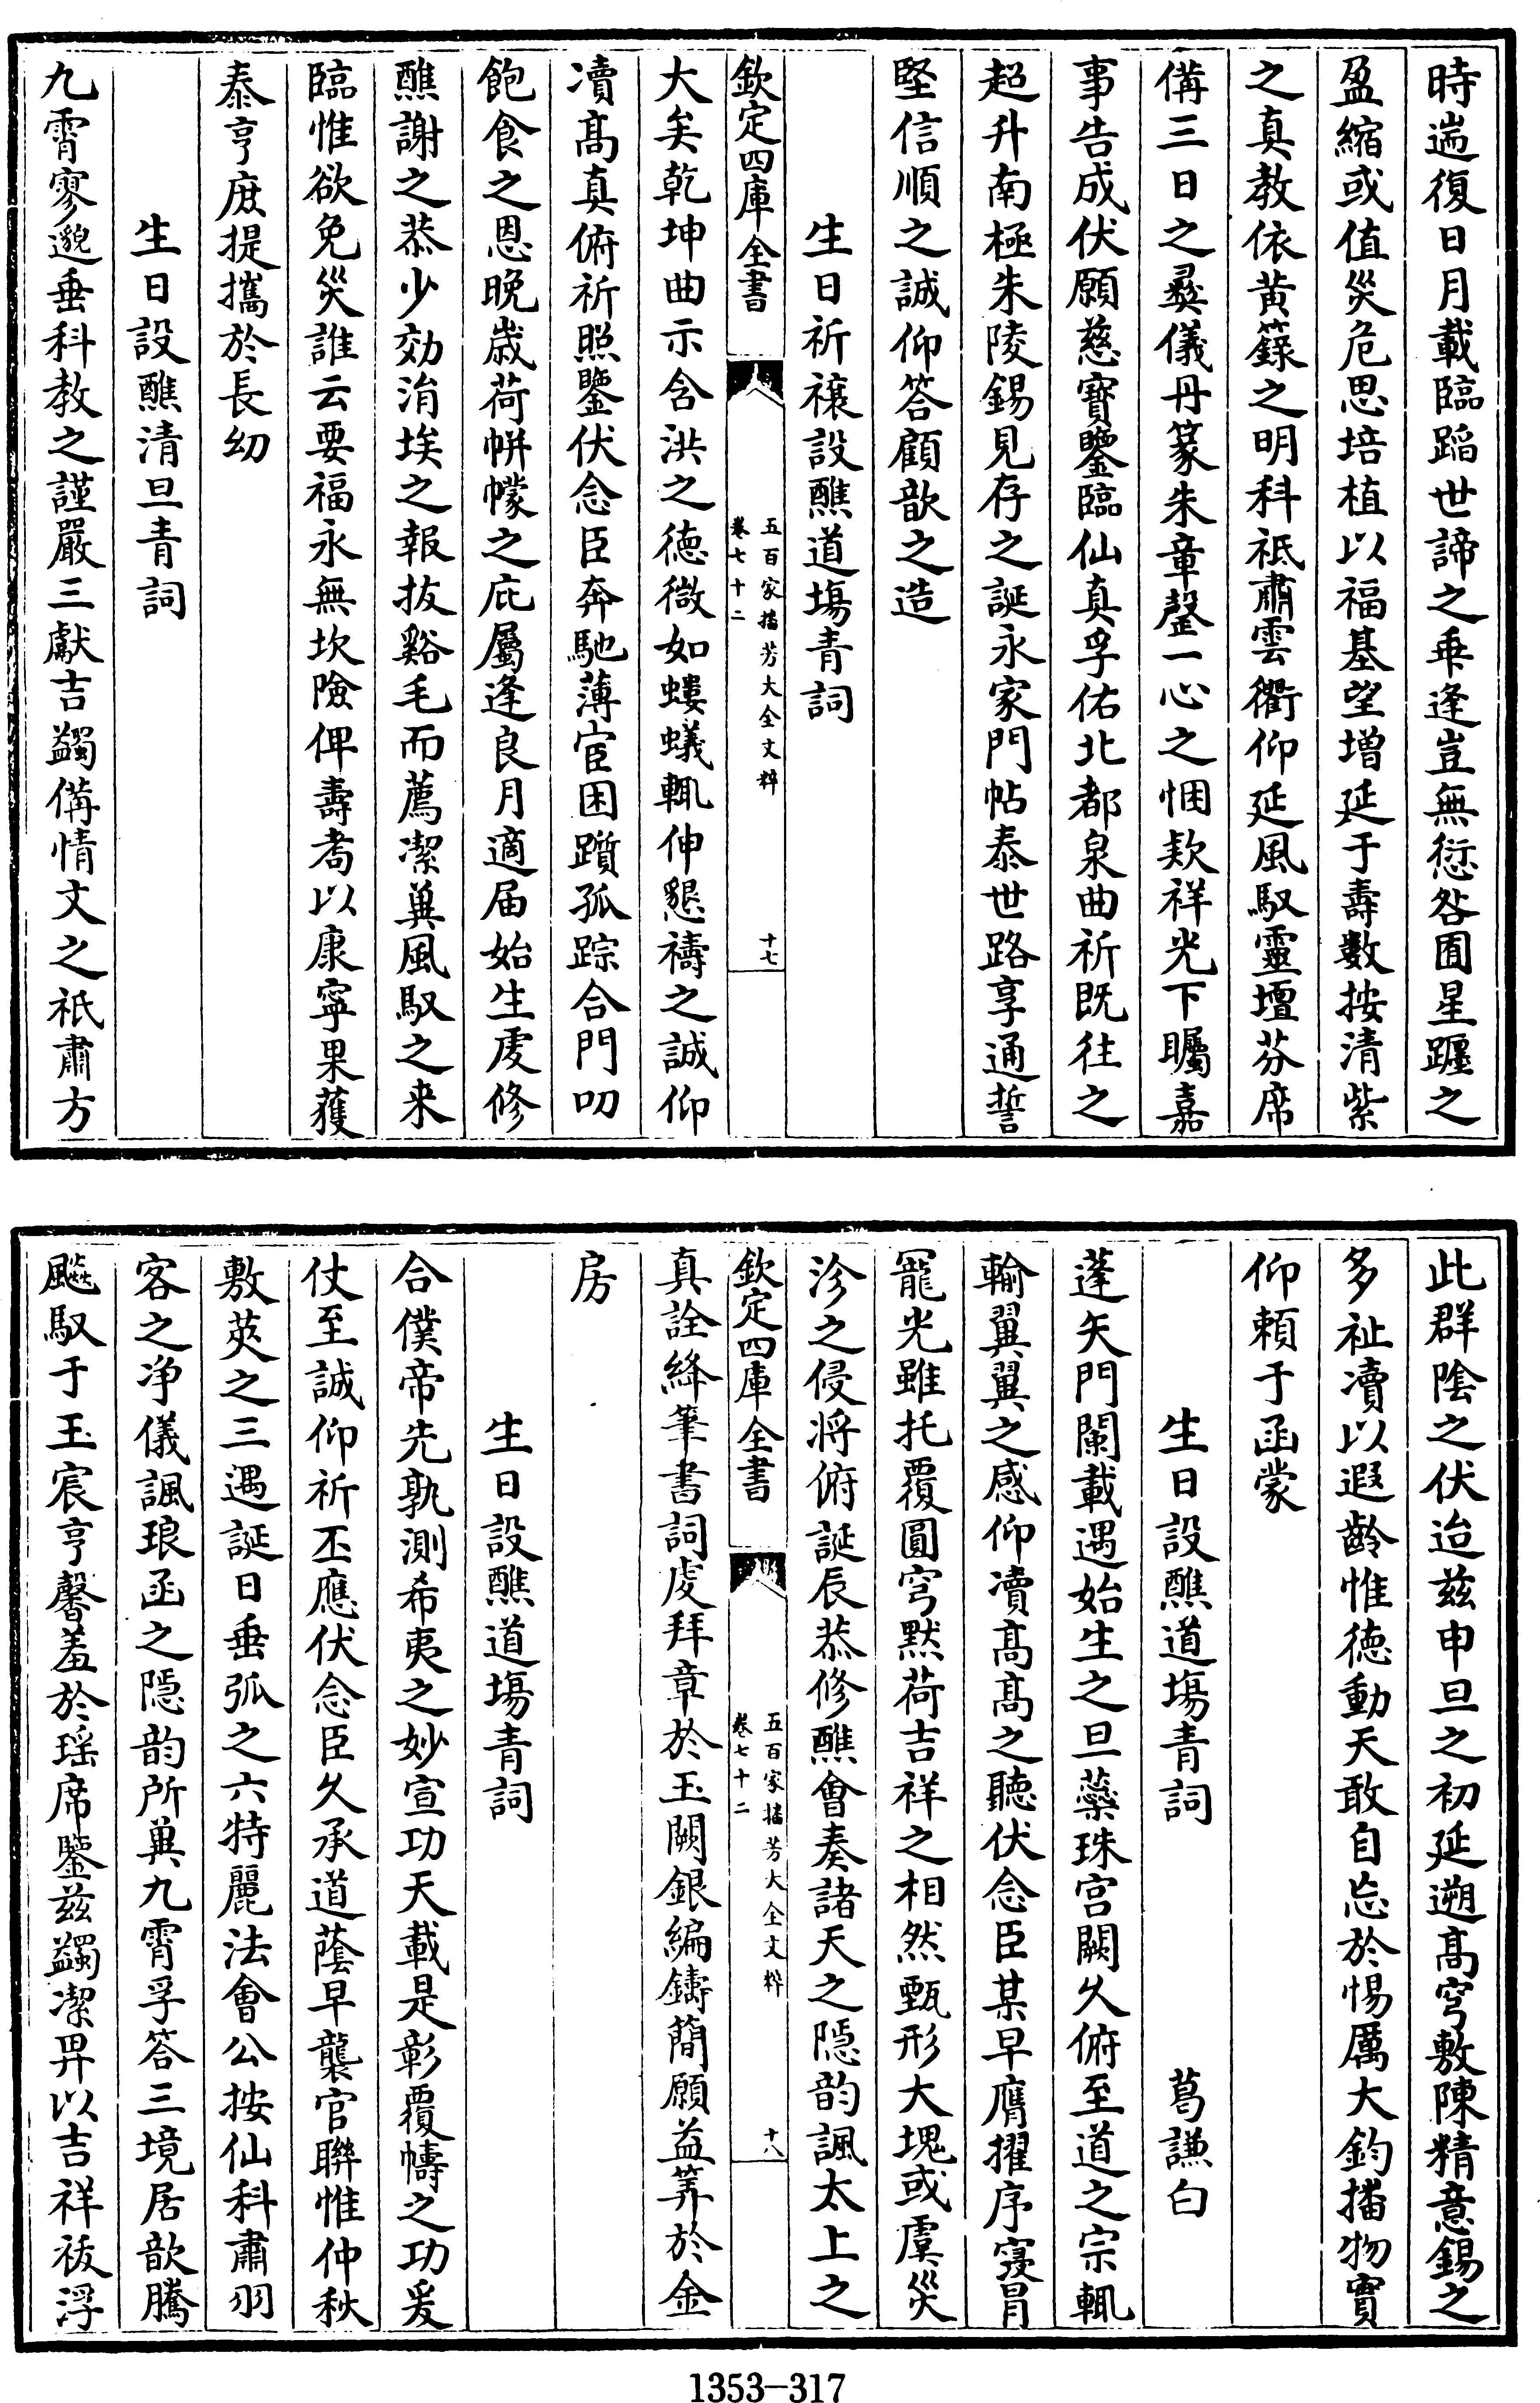 時遄復日月載臨蹈世諦之乗逢豈無愆咎囿星躔之
盈縮或值災危思培植以福基望增延于壽數按清紫
之真教依黄籙之明科祗肅雲衢仰延風馭靈壇芬席
備三日之彛儀丹篆朱章罄一心之悃欵祥光下矚嘉
事告成伏願慈寳鑒臨仙真孚佑北都泉曲祈既往之
超升南極朱陵錫見存之誕永家門帖泰世路享通誓
堅信順之誠仰答顧歆之造
生日祈禳設醮道塲青詞
欽定四庫全書
五百家播芳大全文粹
卷七十二
十七
大矣乾坤曲示含洪之徳微如螻蟻輒伸懇禱之誠仰
凟髙真俯祈照鑒伏念臣奔馳薄宦困躓孤踪合門叨
飽食之恩晚歳荷帡幪之庇屬逢良月適届始生䖍修
醮謝之恭少効涓埃之報抜谿毛而薦潔㢲風馭之来
臨惟欲免災誰云要福永無坎險俾壽耉以康寧果獲
泰亨庶提攜於長幼
生日設醮清旦青詞
九霄寥邈垂科教之謹嚴三獻吉蠲備情文之祇肅方
此群隂之伏迨兹申旦之初延遡髙穹敷陳精意錫之
多祉凟以遐齡惟徳動天敢自忘於惕厲大鈞播物實
仰頼于函䝉
生日設醮道塲青詞　葛謙白
蓬矢門闌載遇始生之旦蘂珠宫闕久俯至道之宗輒
輸翼翼之感仰凟髙髙之聽伏念臣某早膺擢序寖冒
寵光雖托覆圓穹黙荷吉祥之相然甄形大塊或虞災
沴之侵將俯誕辰恭修醮會奏諸天之隠韵諷太上之
欽定四庫全書
五百家播芳大全文粹
卷七十二
十八
真詮絳筆書詞䖍拜章於玉闕銀編鑄簡願益筭於金
房
生日設醮道塲青詞
合僕帝先孰測希夷之妙宣功天載是彰覆幬之功爰
仗至誠仰祈丕應伏念臣久承道蔭早襲官聯惟仲秋
敷莢之三遇誕日垂弧之六特麗法會公按仙科肅羽
客之净儀諷琅函之隠韵所㢲九霄孚答三境居歆騰
飈馭于玉宸亨馨羞於瑶席鑒兹蠲潔畀以吉祥祓浮
1353-317